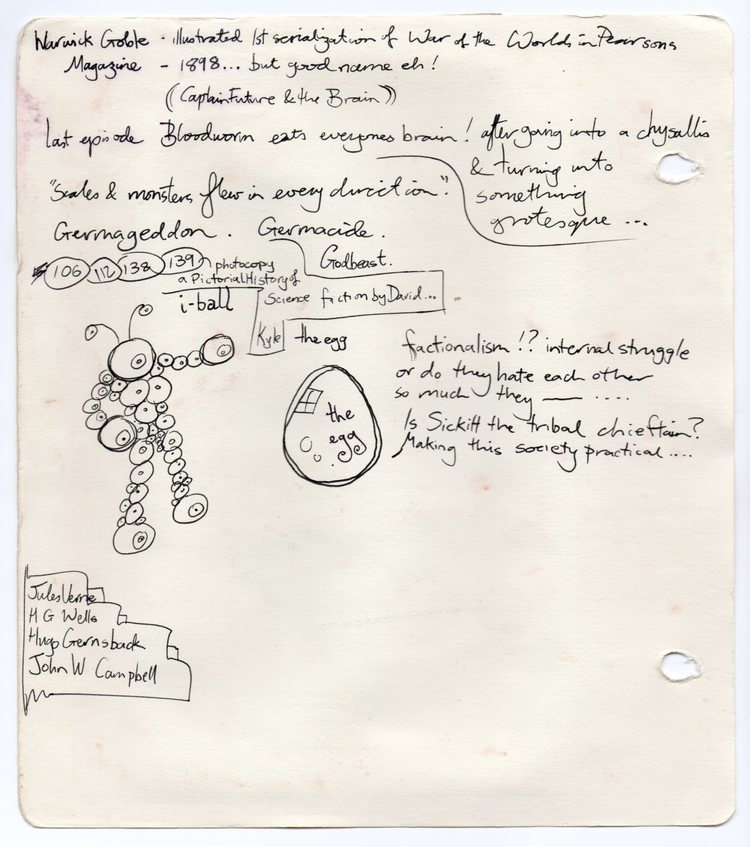 Warwick Goble - illustrated 1st serialization of War of the Worlds in Pearsons
Magazine - 1898... but good name eh!
((Captain Future & the Brain))
Last episode Bloodworm eats everyones brain! after going into a chysallis
& turning into
something
grotesque ...
"Scales & monsters flew in every direction".
Germageddon. Germacide.
Godbeast.
106 112 138 139 photocopy
a Pictorial History of
Science fiction by David...
Kyle
i-ball
the egg
the
egg
factionalism !? internal struggle
or do they hate each other
so much they — ....
Is Sickitt the tribal chieftain?
Making this society practical ....
Jules Verne
H G Wells
Hugo Gernsback
John W Campbell